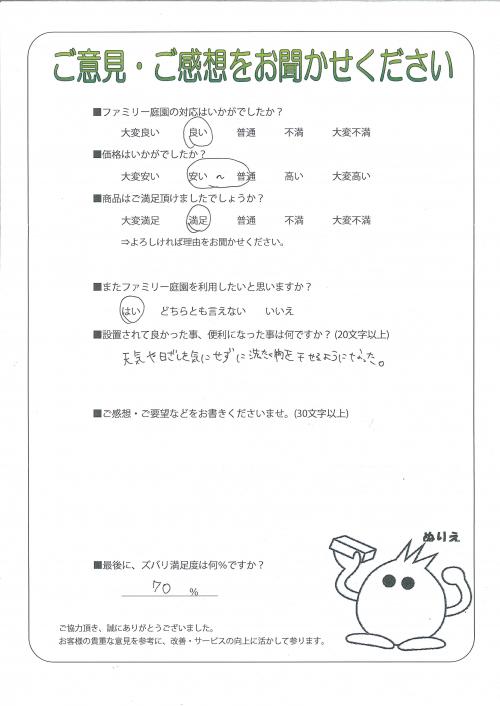 ご意見・ご感想をお聞かせください
■ファミリー庭園の対応はいかがでしたか？
大変良い 良い 普通 不満 大変不満
■価格はいかがでしたか？
大変安い 安い ～ 普通 高い 大変高い
■商品はご満足頂けましたでしょうか？
大変満足 満足 普通 不満 大変不満
⇒よろしければ理由をお聞かせください。
■またファミリー庭園を利用したいと思いますか？
はい どちらとも言えない いいえ
■設置されて良かった事、便利になった事は何ですか？(20文字以上)
天気や日ざしを気にせずに洗たく物を干せるようになった。
■ご感想・ご要望などをお書きくださいませ。(30文字以上)
ぬりえ
■最後に、ズバリ満足度は何％ですか？
70 ％
ご協力頂き、誠にありがとうございました。
お客様の貴重な意見を参考に、改善・サービスの向上に活かして参ります。